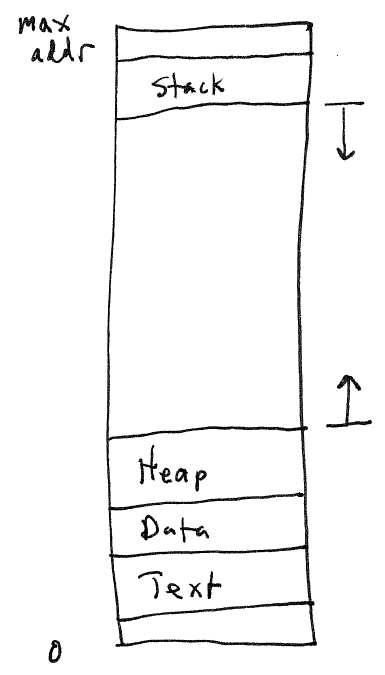 max
addr
Stack
Heap
Data
Text
0